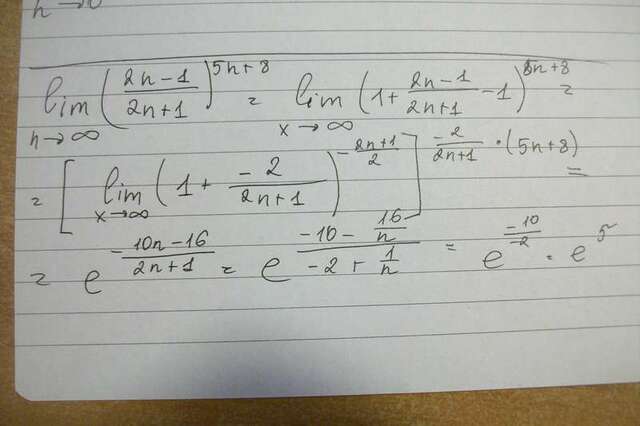 n→0
lim n→∞ ((2n-1)/(2n+1))^(5n+8) = lim x→∞ (1+(2n-1)/(2n+1)-1)^(5n+8) =
= [lim x→∞ (1+(-2)/(2n+1))^(-(2n+1)/2)]^(-2/(2n+1)·(5n+8)) =
= e^((-10n-16)/(2n+1)) = e^((-10-16/n)/(-2+1/n)) = e^((-10)/(-2)) = e^5